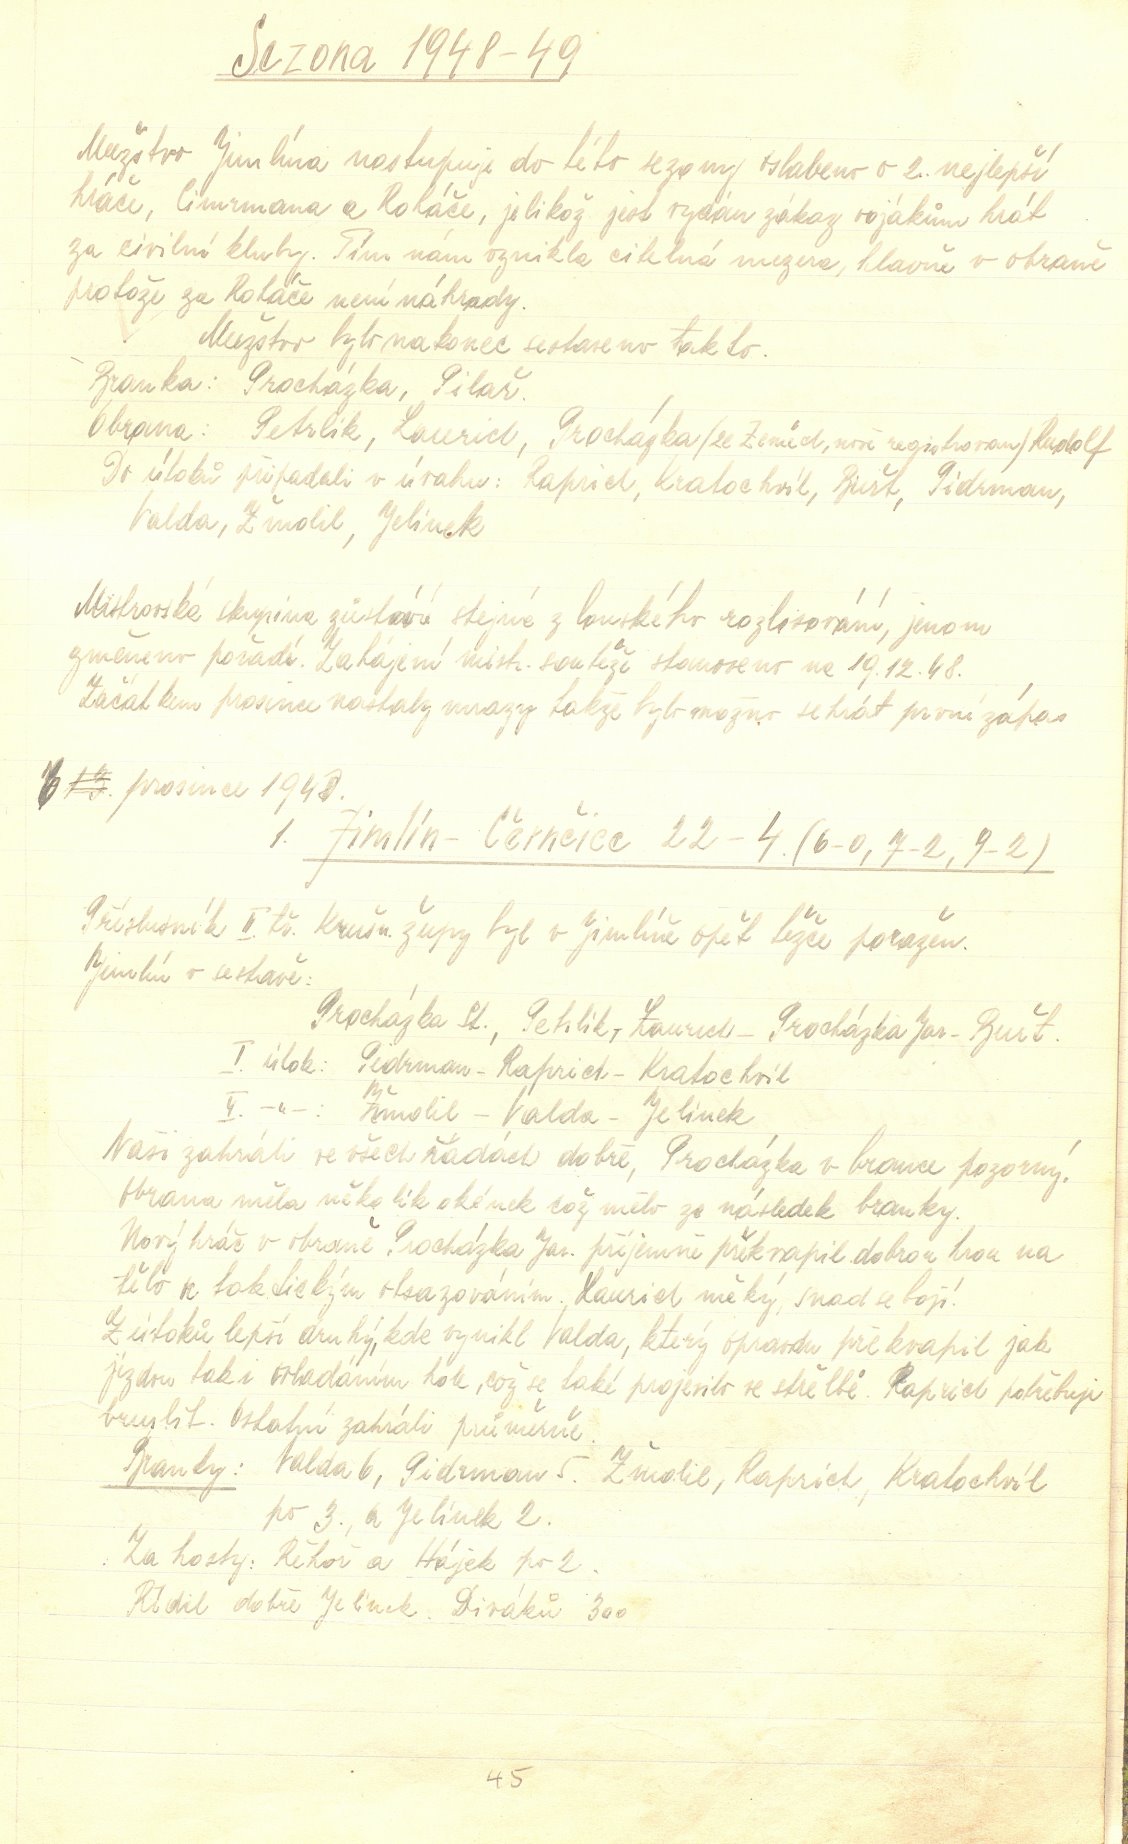 Sezona 1948-49
Mužstvo Jimlína nastupuje do této sezony oslabeno o 2. nejlepší
hráče, Cimrmana a Koláče, jelikož jest vydán zákaz vojákům hrát
za civilní kluby. Tím nám vznikla citelná mezera, hlavně v obraně
protože za Koláče není náhrady.
Mužstvo bylo nakonec sestaveno takto.
Branka: Procházka, Pilař.
Obrana: Petrlík, Laurich, Procházka (ze Zeměch, nově registrovan) Rudolf
Do útoků připadali v úvahu: Kaprich, Kratochvíl, Bušt, Pidrman,
Valda, Žmolil, Jelínek
Mistrovská skupina zůstává stejná z lonského rozlisování, jenom
změněno pořadí. Zahájení mistr. soutěže stanoveno na 19.12.48.
Začátkem prosince nastaly mrazy takže bylo možno sehrát první zápas
13. prosince 1948.
1. Jimlín - Černčice 22 - 4. (6-0, 7-2, 9-2)
Příslušník II. tř. Krušn. župy byl v Jimlíně opět těžce poražen.
Jimlín v sestavě:
Procházka St., Petrlík, Laurich - Procházka Jar - Bušt.
I. útok: Pidrman - Kaprich - Kratochvíl
II. -"- : Žmolil - Valda - Jelínek
Naši zahráli ve všech řadách dobře, Procházka v brance pozorný.
Obrana měla několik okének což mělo za následek branky.
Nový hráč v obraně Procházka Jar. příjemně překvapil dobrou hrou na
tělo a taktickým obsazováním. Laurich měký, snad se bojí.
Z útoků lepší druhý, kde vynikl Valda, který opravdu překvapil jak
jízdou tak i ovládáním hole, což se také projevilo ve střelbě. Kaprich potřebuje
bruslit. Ostatní zahráli průměrně.
Branky: Valda 6, Pidrman 5. Žmolil, Kaprich, Kratochvíl
po 3., a Jelínek 2.
Za hosty: Řehoř a Hájek po 2.
Řídil dobře Jelínek. Diváků 300
45